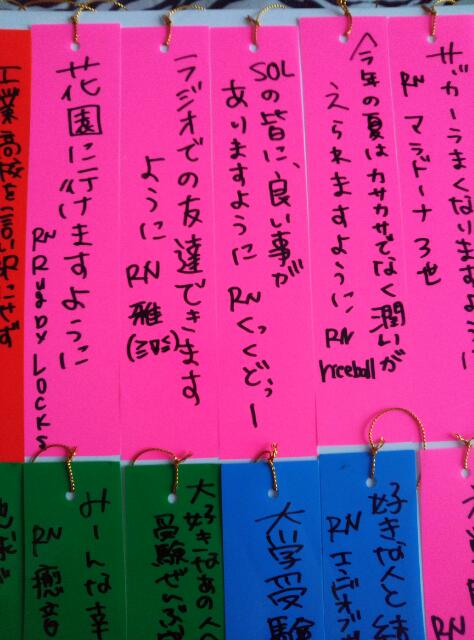 サッカーうまくなりますように
RN マラドーナ3世
今年の夏はカサカサでなく潤いが
えられますように RN
riceball
SOLの皆に、良い事が
ありますように RNくっくどぅー
ラジオでの友達できます
ように RN 雅
花園に行けますように
RN RUGBY LOCKS
工業高校を言い訳にせず
好きな人と結
RN エンジョイ
大学受験
大好きなあの人
受験ぜ
みーんな幸
RN 癒音
地球が
RN